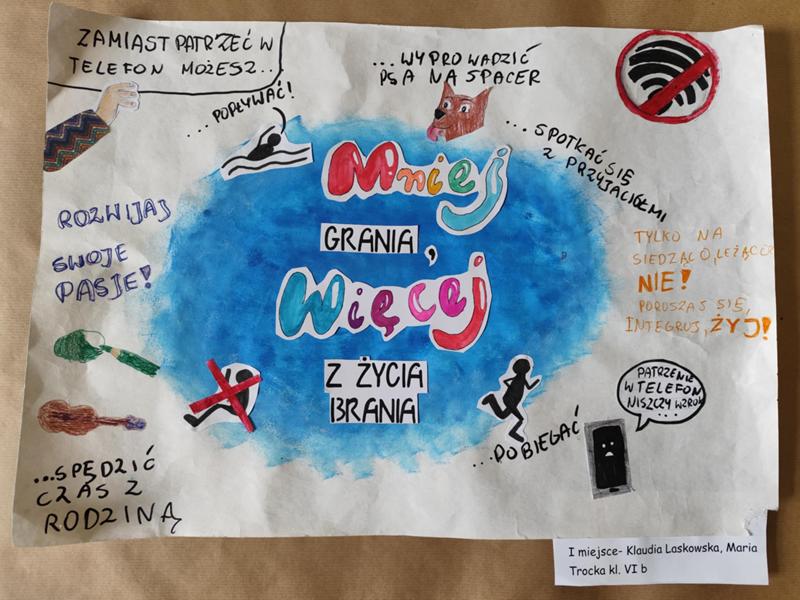 ZAMIAST PATRZEĆ W
TELEFON MOŻESZ...
...POPŁYWAĆ!
...WYPROWADZIĆ
PSA NA SPACER
...SPOTKAĆ SIĘ
Z PRZYJACIÓŁMI
Mniej
GRANIA,
Więcej
Z ŻYCIA
BRANIA
ROZWIJAJ
SWOJE
PASJE!
TYLKO NA
SIEDZĄCO, LEŻĄCO
NIE!
PORUSZAJ SIĘ,
INTEGRUJ, ŻYJ!
PATRZENIE
W TELEFON
NISZCZY WZROK
...
...POBIEGAĆ
...SPĘDZIĆ
CZAS Z
RODZINĄ
I miejsce- Klaudia Laskowska, Maria
Trocka kl. VI b